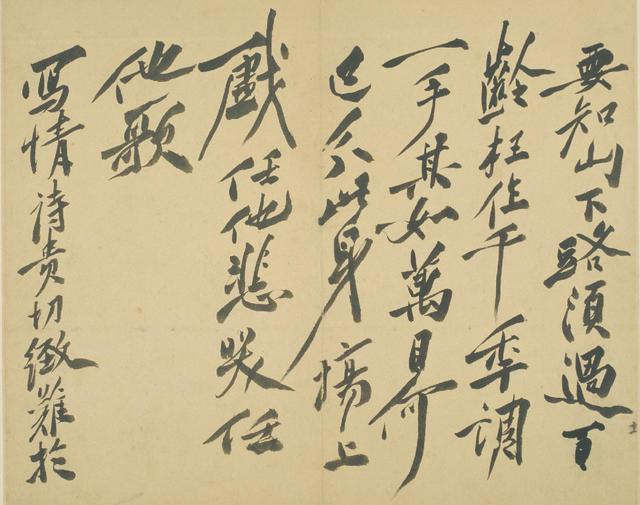 要知山下路須過百
齡枉作千秊調
一手其如萬目何
已分此身場上
戲任他悲哭任
他歌
寫情詩貴切緻難於